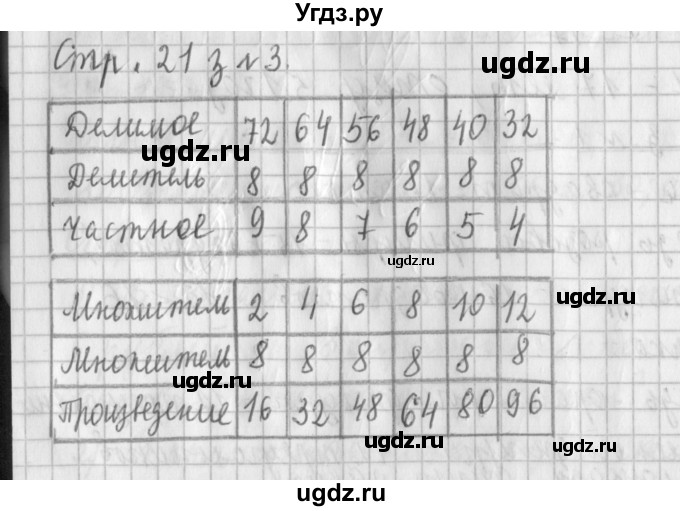 Угдз.ру
Стр. 21 з №3.
ugdz.ru
Делимое 72 64 56 48 40 32
ugdz.ru
Делитель 8 8 8 8 8 8
ugdz.ru
Частное 9 8 7 6 5 4
ugdz.ru
Множител 2 4 6 8 10 12
ugdz.ru
Множител 8 8 8 8 8 8
ugdz.ru
Произведение 16 32 48 64 80 96
ugdz.ru
ugdz.ru
ugdz.ru